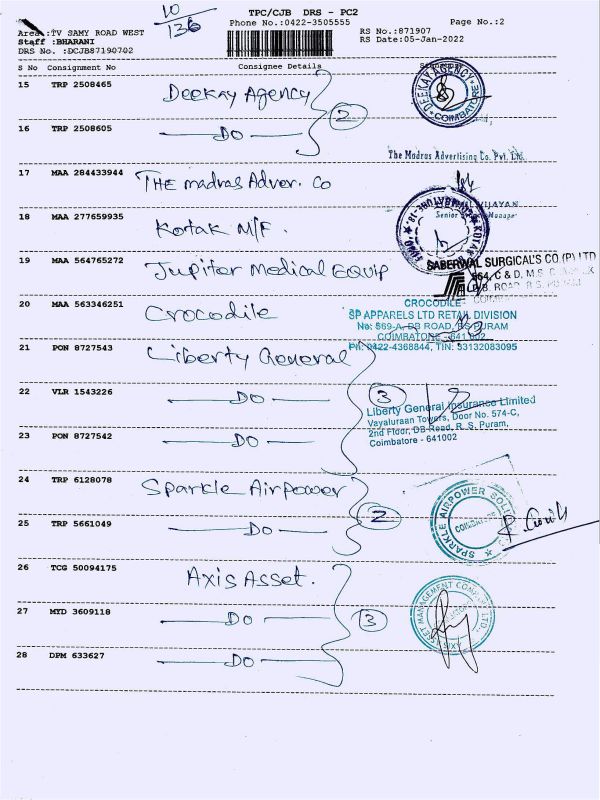 10/136
TPC/CJB DRS - PC2
Phone No.:0422-3505555
Page No.:2
Area :TV SAMY ROAD WEST
Staff :BHARANI
DRS No. :DCJB87190702
RS No.:871907
RS Date:05-Jan-2022
S No Consignment No Consignee Details
15 TRP 2508465 Deekay Agency
DEEKAY AGENCY COIMBATORE
2
16 TRP 2508605 — DO —
The Madras Advertising Co. Pvt. Ltd.
17 MAA 284433944 THE madras Adver. Co
18 MAA 277659935 Kotak M/F.
Senior Manager
19 MAA 564765272 Jupiter Medical EQUIP
SABERWAL SURGICAL'S CO.(P) LTD
564, C & D, M.S.
D.B. ROAD, R.S. PURAM
20 MAA 563346251 Crocodile
CROCODILE
SP APPARELS LTD RETAIL DIVISION
No: 569-A, DB ROAD, RS PURAM
COIMBATORE - 641 002
Ph: 0422-4368844, TIN: 33132083095
21 PON 8727543 Liberty General
22 VLR 1543226 — DO —
3
Liberty General Insurance Limited
Vayaluraan Towers, Door No. 574-C,
2nd Floor, DB Road, R. S. Puram,
Coimbatore - 641002
23 PON 8727542 — DO —
24 TRP 6128078 Sparkle Airpower
2
SPARKLE AIRPOWER COIMBATORE
25 TRP 5661049 — DO —
26 TCG 50094175 Axis Asset.
27 MYD 3609118 — DO —
3
AXIS ASSET MANAGEMENT COMPANY LTD.
28 DPM 633627 — DO —